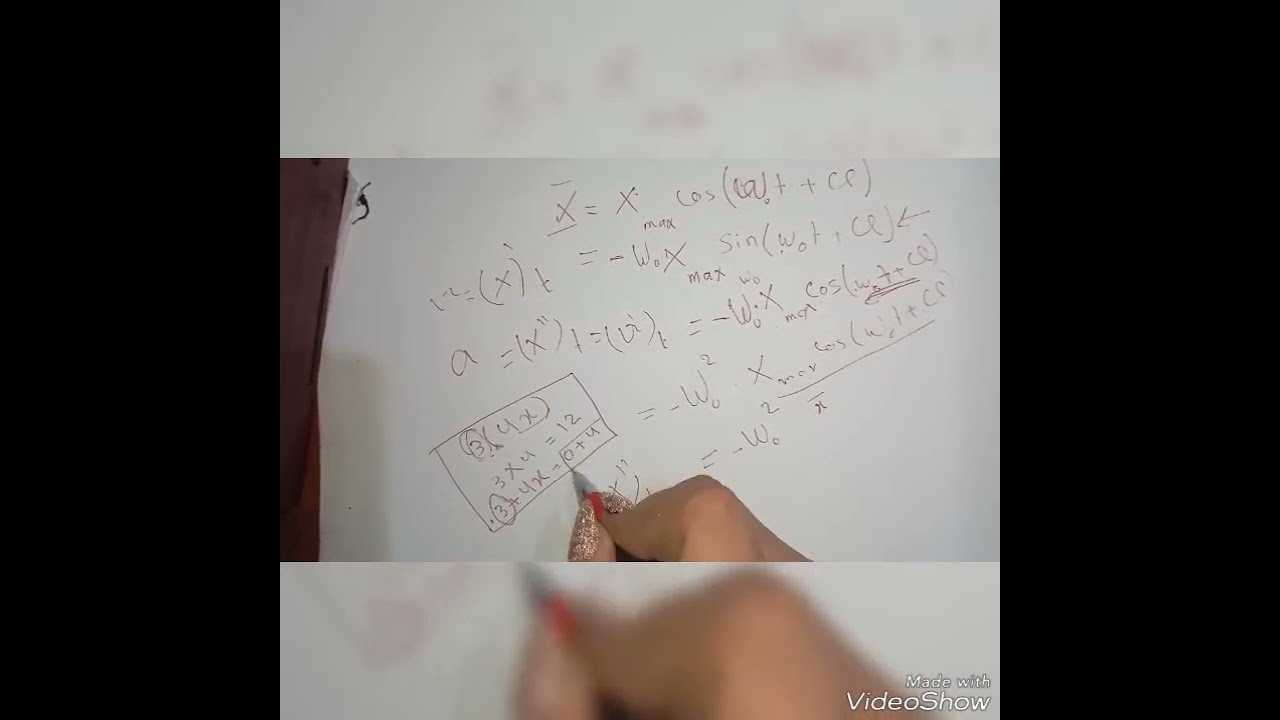 x̄ = x max cos(ω₀t + φ)
v = (x')t = -ω₀x max sin(ω₀t + φ) ←
ω₀
a = (x'')t = (v')t = -ω₀.x max cos(ω₀t + φ)
= -ω₀². x max cos(ω₀t + φ)
= -ω₀² x̄
3(4x)
3x4 = 12
3+4x = 0+4
x'')t
Made with
VideoShow